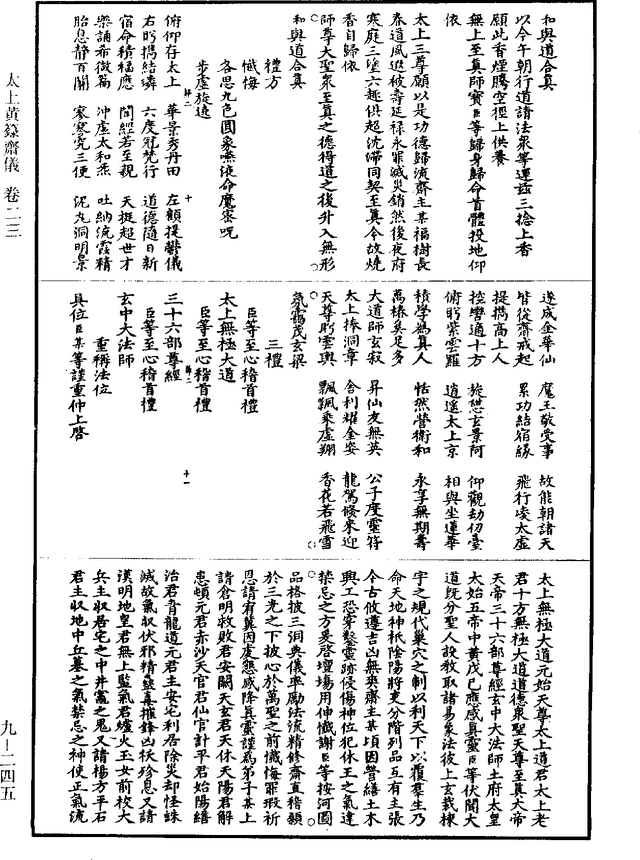 太上黃籙齋儀 卷二三
和與道合真
以今午朝行道請法眾等運茲三捻上香
願此香煙騰空徑上供養
無上至真師寶臣等歸身歸命首體投地仰
依
太上三尊願以是功德歸流齋主某福樹長
春道風遐被壽延祿永罪滅災銷然後夜府
寒庭三塗六趣俱超沈滯同契至真今故燒
香自歸依
師尊大聖眾至真之德得道之後升入無形
和與道合真
禮方
懺悔
各思九色圓象嚥液命魔密呪
步虛旋遶
俯仰存太上 華景秀丹田 左顧提鬱儀
右眄攜結璘 六度冠梵行 道德隨日新
宿命積福應 聞經若至親 天挺超世才
樂誦希微篇 沖虛太和炁 吐納流霞精
胎息靜百關 寥寥究三便 泥丸洞明景
遂成金華仙 魔王敬受事 故能朝諸天
皆從齋戒起 累功結宿緣 飛行凌太虛
提攜高上人
控轡適十方 旋憩玄景阿 仰觀劫仞臺
俯眄紫雲羅 逍遙太上京 相與坐蓮華
積學為真人 恬然營衛和 永享無期壽
萬椿奚足多
大道師玄寂 昇仙友無英 公子度靈符
太上捧洞章 舍利耀金姿 龍駕倏來迎
天尊眄雲輿 飄飄乘虛翔 香花若飛雪
氛靄茂玄梁
三禮
臣等至心稽首禮
太上無極大道
臣等至心稽首禮
三十六部尊經
臣等至心稽首禮
玄中大法師
重稱法位
具位臣某等謹重仲上啓
太上無極大道元始天尊太上道君太上老
君十方無極大道道德眾聖天尊至真大帝
天帝三十六部尊經玄中大法師土府太皇
太始五帝中黃戊己應感真靈臣等伏聞大
道既分聖人設教取諸易象法彼上玄栽棟
宇之規代巢穴之制以利天下以覆羣生乃
命天地神祇陰陽將吏分階列品互有主張
今古攸遵吉凶無爽齋主某頃因營繕土木
興工恐穿鑿靈跡侵傷神位犯休王之氣違
禁忌之方爰啓壇場用伸懺謝臣等按河圖
品格披三洞典儀率勵法流精修齋直稽顙
於三光之下披心於萬聖之前懺悔罪瑕祈
恩請宥冀因虔懇咸降真靈謹為弟子某上
請倉明救敗君安闢天玄君天休天陽君解
患頓元君赤沙天官君仙官計平君始陽繕
治君青龍道元君主安宅利居除災却怪誅
滅故氣収伏邪精蠱真摧鋒凶妖殄息又請
漢明地皇君無上監氣君爐火玉女前校大
兵主収居宅之中井竈之鬼又請楊方平石
君主収地中丘墓之氣禁忌之神使正氣流
九－二四五